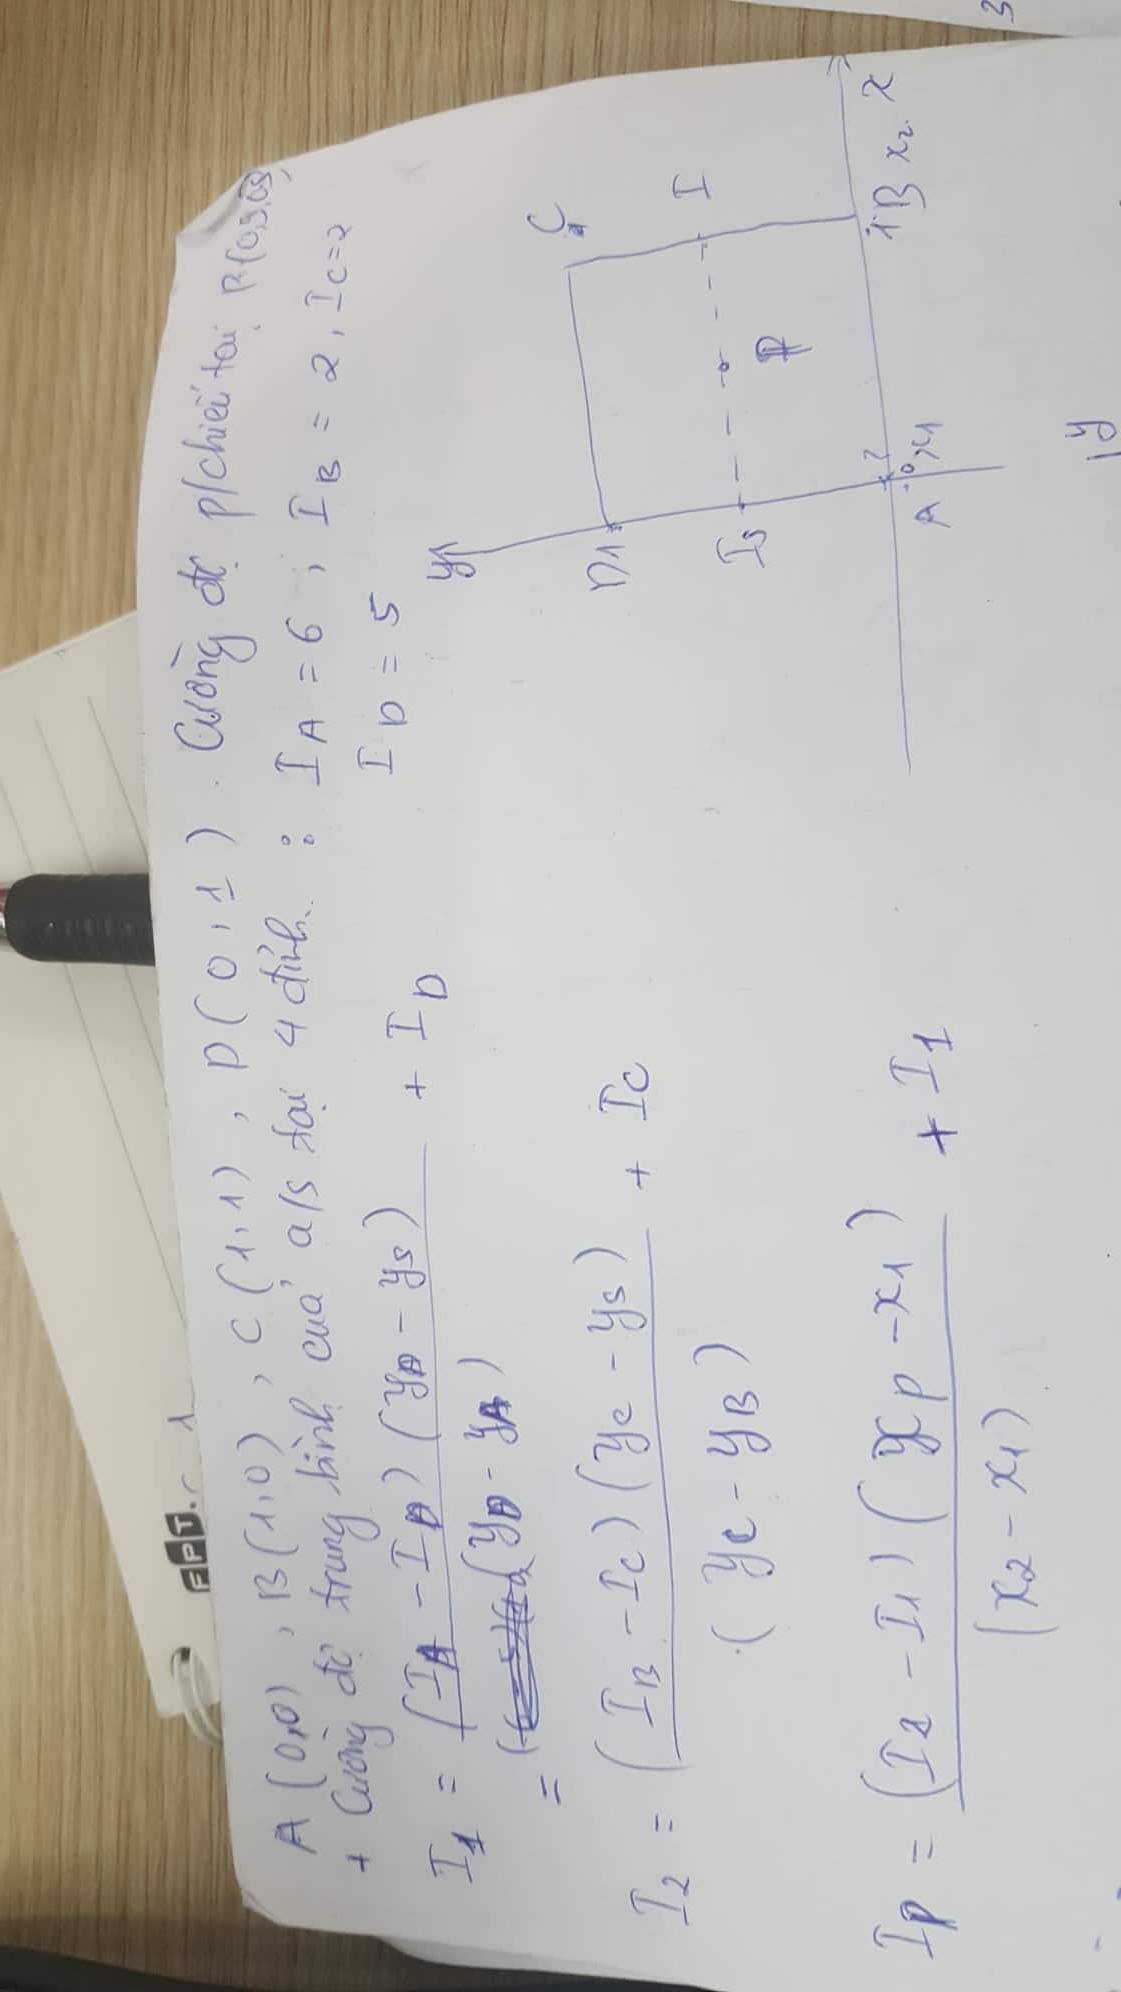 FPT.
A (0,0) , B(1,0) , C (1,1) , D(0,1) . Cường độ p/chiếu tại P(0,5,0,5)
+ Cường độ trung bình của a/s tại 4 đỉnh : I_A = 6 ; I_B = 2, I_C = 2
I_D = 5
I_1 = (I_A - I_D) (y_D - y_S) / (y_D - y_A) + I_D
=
I_2 = (I_B - I_C) (y_C - y_S) / (y_C - y_B) + I_C
I_P = (I_2 - I_1) (x_P - x_1) / (x_2 - x_1) + I_1
y
C
D1
I
I_S
P
A 0 x_1
1 B x_2 x
y
3